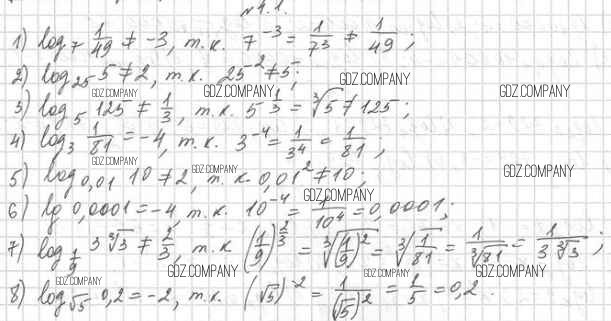 №4.1.
1) log₇ 1/49 ≠ -3, т.к. 7⁻³ = 1/7³ ≠ 1/49;
2) log₂₅ 5 ≠ 2, т.к. 25⁻² ≠ 5;
GDZ.COMPANY GDZ.COMPANY GDZ.COMPANY GDZ.COMPANY
3) log₅ 125 ≠ 1/3, т.к. 5^(1/3) = ∛5 ≠ 125;
4) log₃ 1/81 = -4, т.к. 3⁻⁴ = 1/3⁴ = 1/81;
GDZ.COMPANY GDZ.COMPANY GDZ.COMPANY
5) log₀,₀₁ 10 ≠ 2, т.к. 0,01² ≠ 10;
GDZ.COMPANY
6) lg 0,0001 = -4, т.к. 10⁻⁴ = 1/10⁴ = 0,0001;
7) log_(1/9) 3∛3 ≠ 2/3, т.к (1/9)^(2/3) = ∛((1/9)²) = ∛(1/81) = 1/∛81 = 1/(3∛3);
GDZ.COMPANY GDZ.COMPANY GDZ.COMPANY GDZ.COMPANY
8) log_√5 0,2 = -2, т.к. (√5)⁻² = 1/(√5)² = 1/5 = 0,2